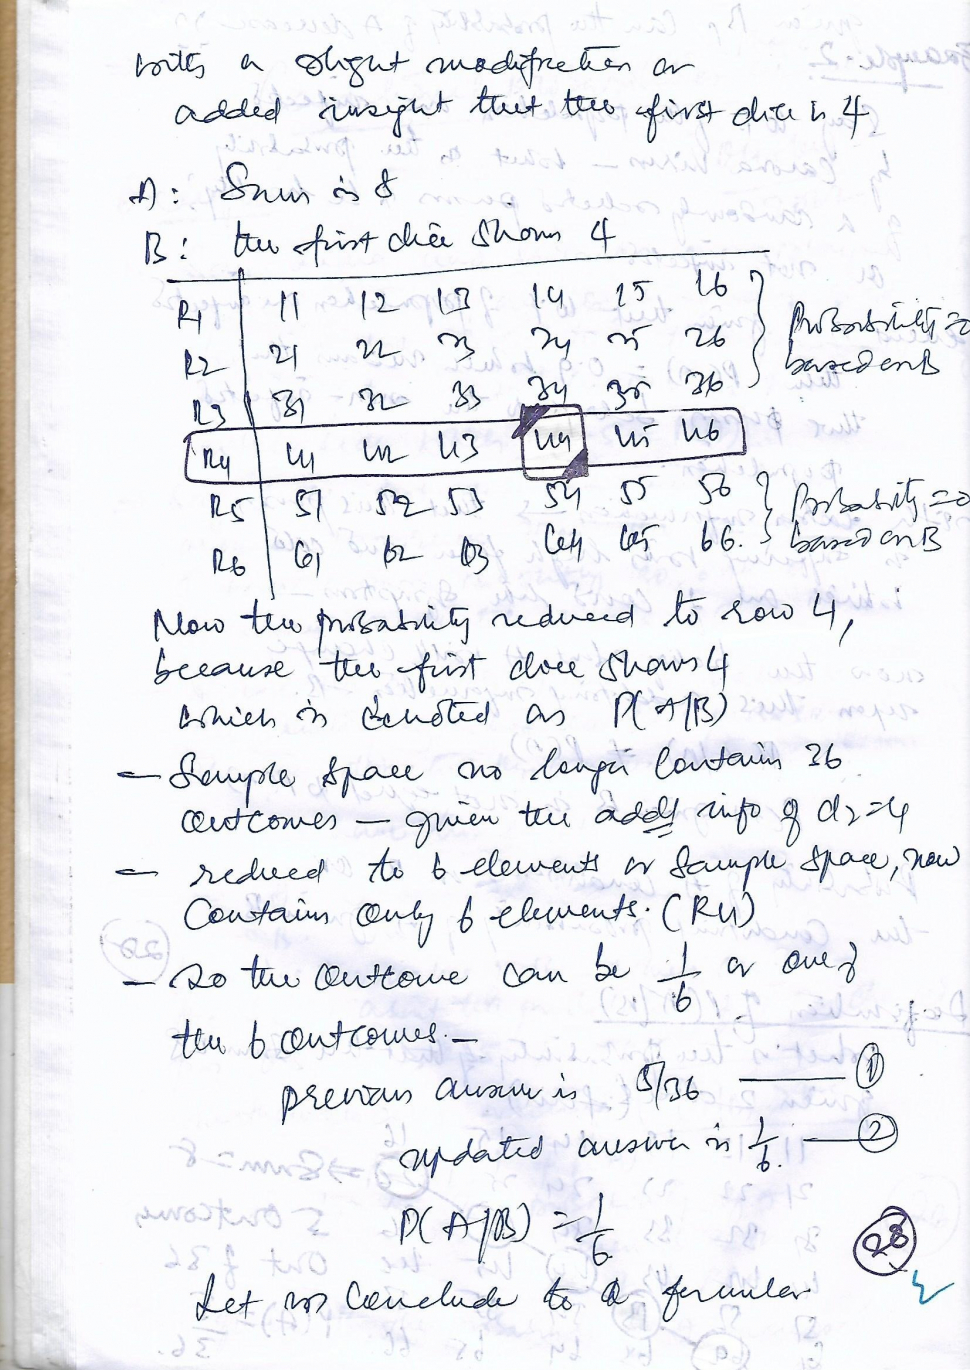 with a slight modification or
added insight that the first dice is 4.
A: Sum is 8
B: the first dice shows 4
R1 11 12 13 14 15 16
R2 21 22 23 24 25 26
R3 31 32 33 34 35 36
Probability=0
based on B
R4 41 42 43 44 45 46
R5 51 52 53 54 55 56
R6 61 62 63 64 65 66.
Probability=0
based on B
Now the probability reduced to row 4,
because the first dice shows 4
which is denoted as P(A/B)
— Sample space no longer contain 36
outcomes — given the addl info of d2=4
— reduced to 6 elements or Sample space, now
Contains only 6 elements. (R4)
— so the outcome can be 1/6 or one of
the 6 outcomes. —
previous answer is 5/36 — 1
updated answer is 1/6. — 2
P(A/B) = 1/6
28
Let us conclude to a formular